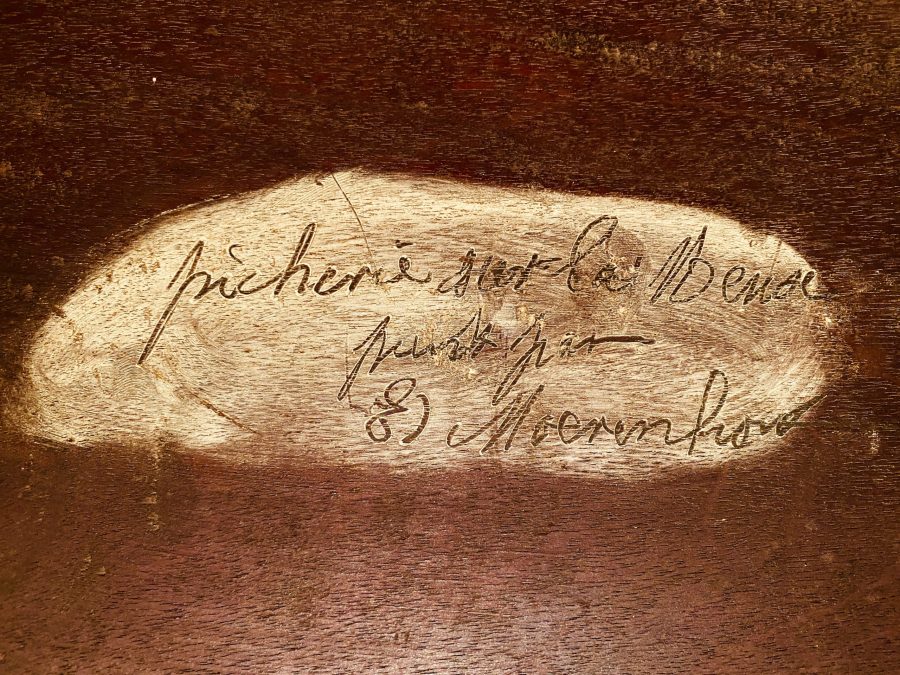 picherie sur la Meuse
peint par
E) Moerenhout